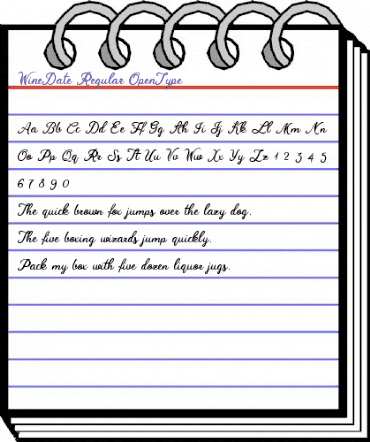 WineDate Regular OpenType
Aa Bb Cc Dd Ee Ff Gg Hh Ii Jj Kk Ll Mm Nn
Oo Pp Qq Rr Ss Tt Uu Vv Ww Xx Yy Zz 1 2 3 4 5
6 7 8 9 0
The quick brown fox jumps over the lazy dog.
The five boxing wizards jump quickly.
Pack my box with five dozen liquor jugs.